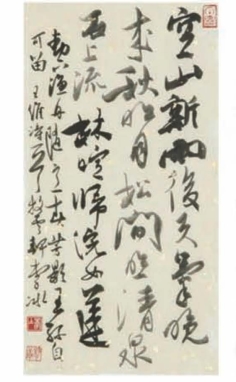 空山新雨後天氣晚
來秋明月松間照清泉
石上流竹喧歸浣女蓮
動下漁舟隨意春芳歇王孫自
可留王維詩